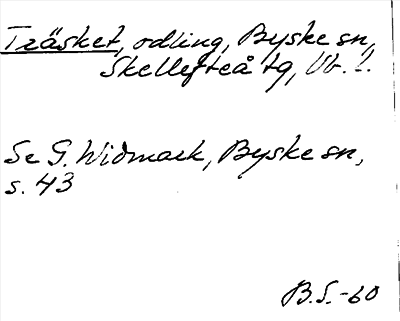 Träsket, odling, Byske sn,
Skellefteå tg, Vb. l.
Se G. Widmark, Byske sn,
s. 43
B.S.-60